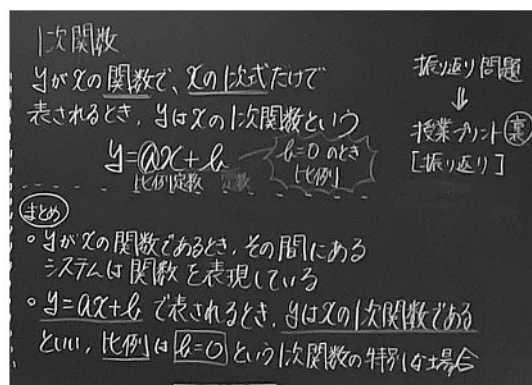 1次関数
yがxの関数で、xの1次式だけで
表されるとき、yはxの1次関数という
y=ax+b
b=0 のとき
比例
比例定数 定数
振り返り問題
↓
授業プリント裏
[振り返り]
まとめ
○ yがxの関数であるとき、その間にある
システムは関数を表現している
○ y=ax+b で表されるとき、yはxの1次関数である
といい、比例は b=0 という1次関数の特別な場合